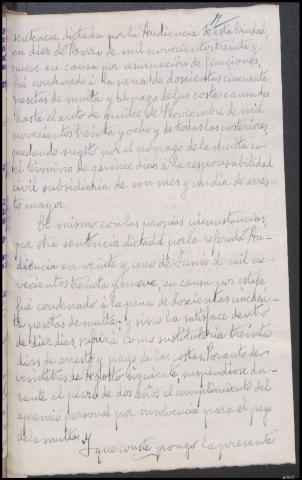 sentencia dictada por la Audiencia de esta Ciudad,
en diez de Marzo de mil novecientos treinta y
nueve en causa por usurpación de funciones,
fué condenado á la pena de doscientas cincuenta
pesetas de multa y al pago de las costas causadas
hasta el auto de quince de Noviembre de mil
novecientos treinta y ocho y de todas las posteriores,
quedando sugeto por el no pago de la multa en
el término de quince dias á la responsabilidad
civil subsidiaria de un mes y un día de arres-
to mayor.
El mismo con las propias circunstancias
por otra sentencia dictada por la referida Au-
diencia en veinte y uno de Junio de mil no-
vecientos treinta y nueve, en causa por estafa
fué condenado á la pena de doscientas cincuen-
ta pesetas de multa y sino la satisface dentro
de diez dias sufrirá como sustitutoria treinta
dias de arresto y pago de las costas. Por auto de
veintitres de Agosto siguiente, suspendiose du-
rante el plazo de dos años el cumplimiento del
apremio personal por insolvencia para el pago
de la multa.
Y que conste pongo la presente